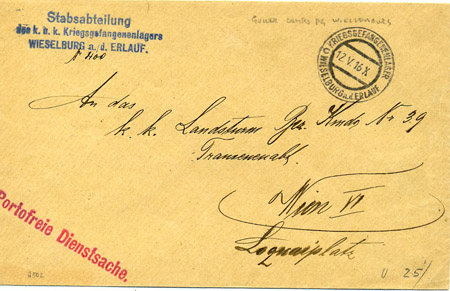 Stabsabteilung
des k. u. k. Kriegsgefangenenlagers
WIESELBURG a./d. ERLAUF.
K. u. K. KRIEGSGEFANGENENLAGER
12.V.16 X
WIESELBURG a.d. ERLAUF
An das
k. k. Landsturm Bez. Kmdo Nr 39
Wien VI
Loquaiplatz
Portofreie Dienstsache.
U 25/